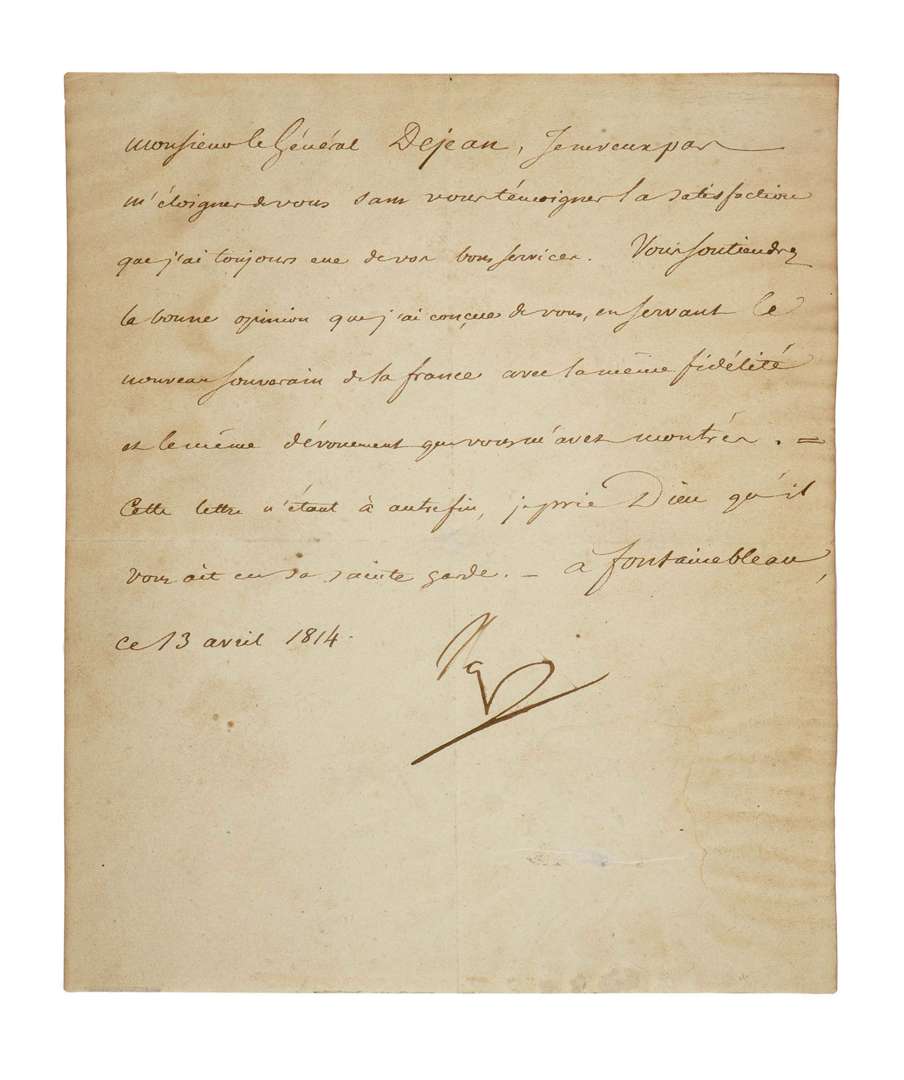 Monsieur le Général Dejean, Je ne veux pas
m'éloigner de vous sans vous témoigner la satisfaction
que j'ai toujours eue de vos bons services. Vous soutiendrez
la bonne opinion que j'ai conçue de vous, en servant le
nouveau souverain de la france avec la même fidélité
et le même dévouement que vous m'avez montrés. =
Cette lettre n'étant à autre fin, je prie Dieu qu'il
vous ait en sa sainte garde. – à fontainebleau,
ce 13 avril 1814.